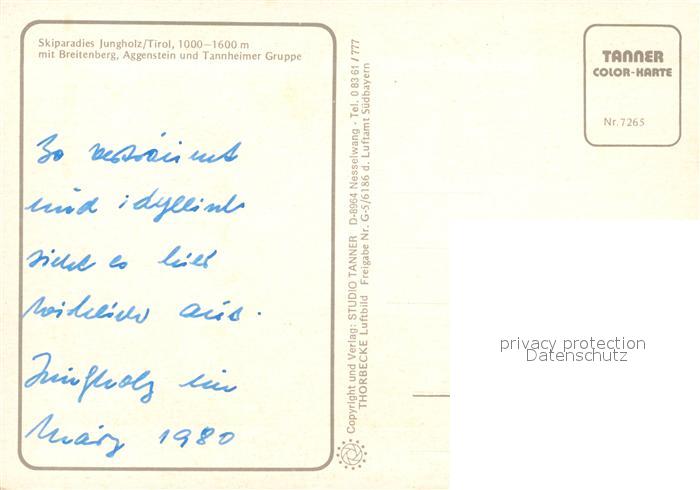 Skiparadies Jungholz/Tirol, 1000–1600 m
mit Breitenberg, Aggenstein und Tannheimer Gruppe
So verträumt
und idyllisch
sieht es hier
wirklich aus.
Jungholz im
März 1980
Copyright und Verlag: STUDIO TANNER D-8964 Nesselwang · Tel. 0 83 61 / 777
THORBECKE Luftbild Freigabe Nr. G-5/6186 d. Luftamt Südbayern
TANNER
COLOR-KARTE
Nr. 7265
privacy protection
Datenschutz